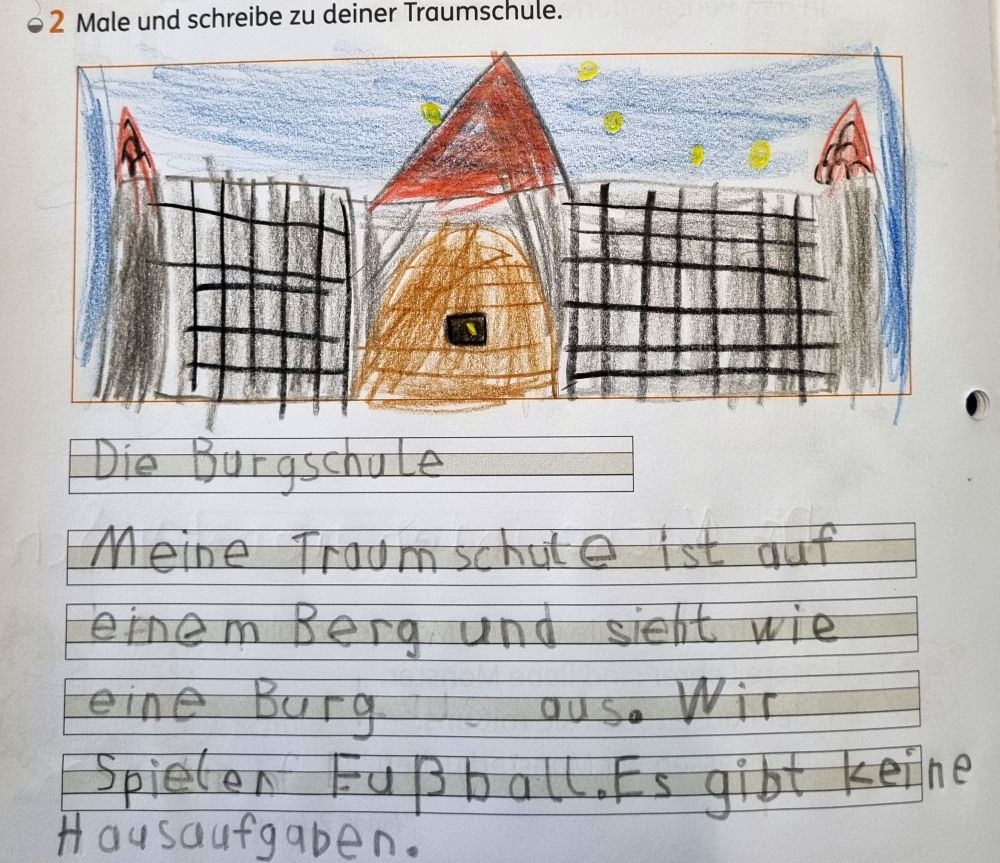 2 Male und schreibe zu deiner Traumschule.
Die Burgschule
Meine Traumschule ist auf
einem Berg und sieht wie
eine Burg aus. Wir
Spielen Fußball. Es gibt keine
Hausaufgaben.